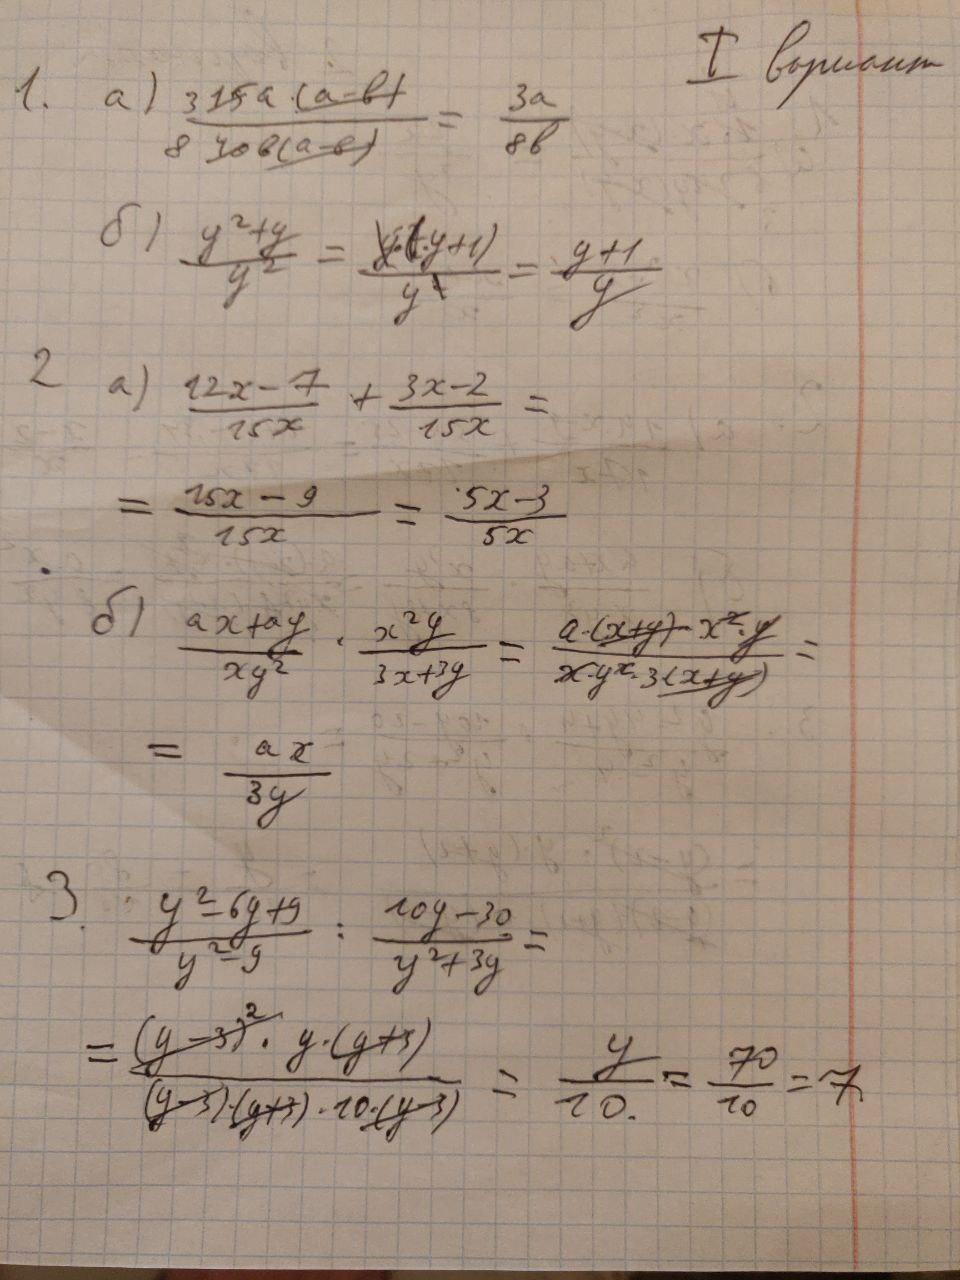 I вариант
1. а) 3 15a·(a-b) / 8 40b(a-b) = 3a / 8b
б) y²+y / y² = y·(y+1) / y² = y+1 / y
2 а) 12x-7 / 15x + 3x-2 / 15x =
= 15x-9 / 15x = 5x-3 / 5x
б) ax+ay / xy² · x²y / 3x+3y = a·(x+y)·x²·y / x·y²·3(x+y) =
= ax / 3y
3. y²-6y+9 / y²-9 : 10y-30 / y²+3y =
= (y-3)²·y·(y+3) / (y-3)·(y+3)·10·(y-3) = y / 10. = 70 / 10 = 7